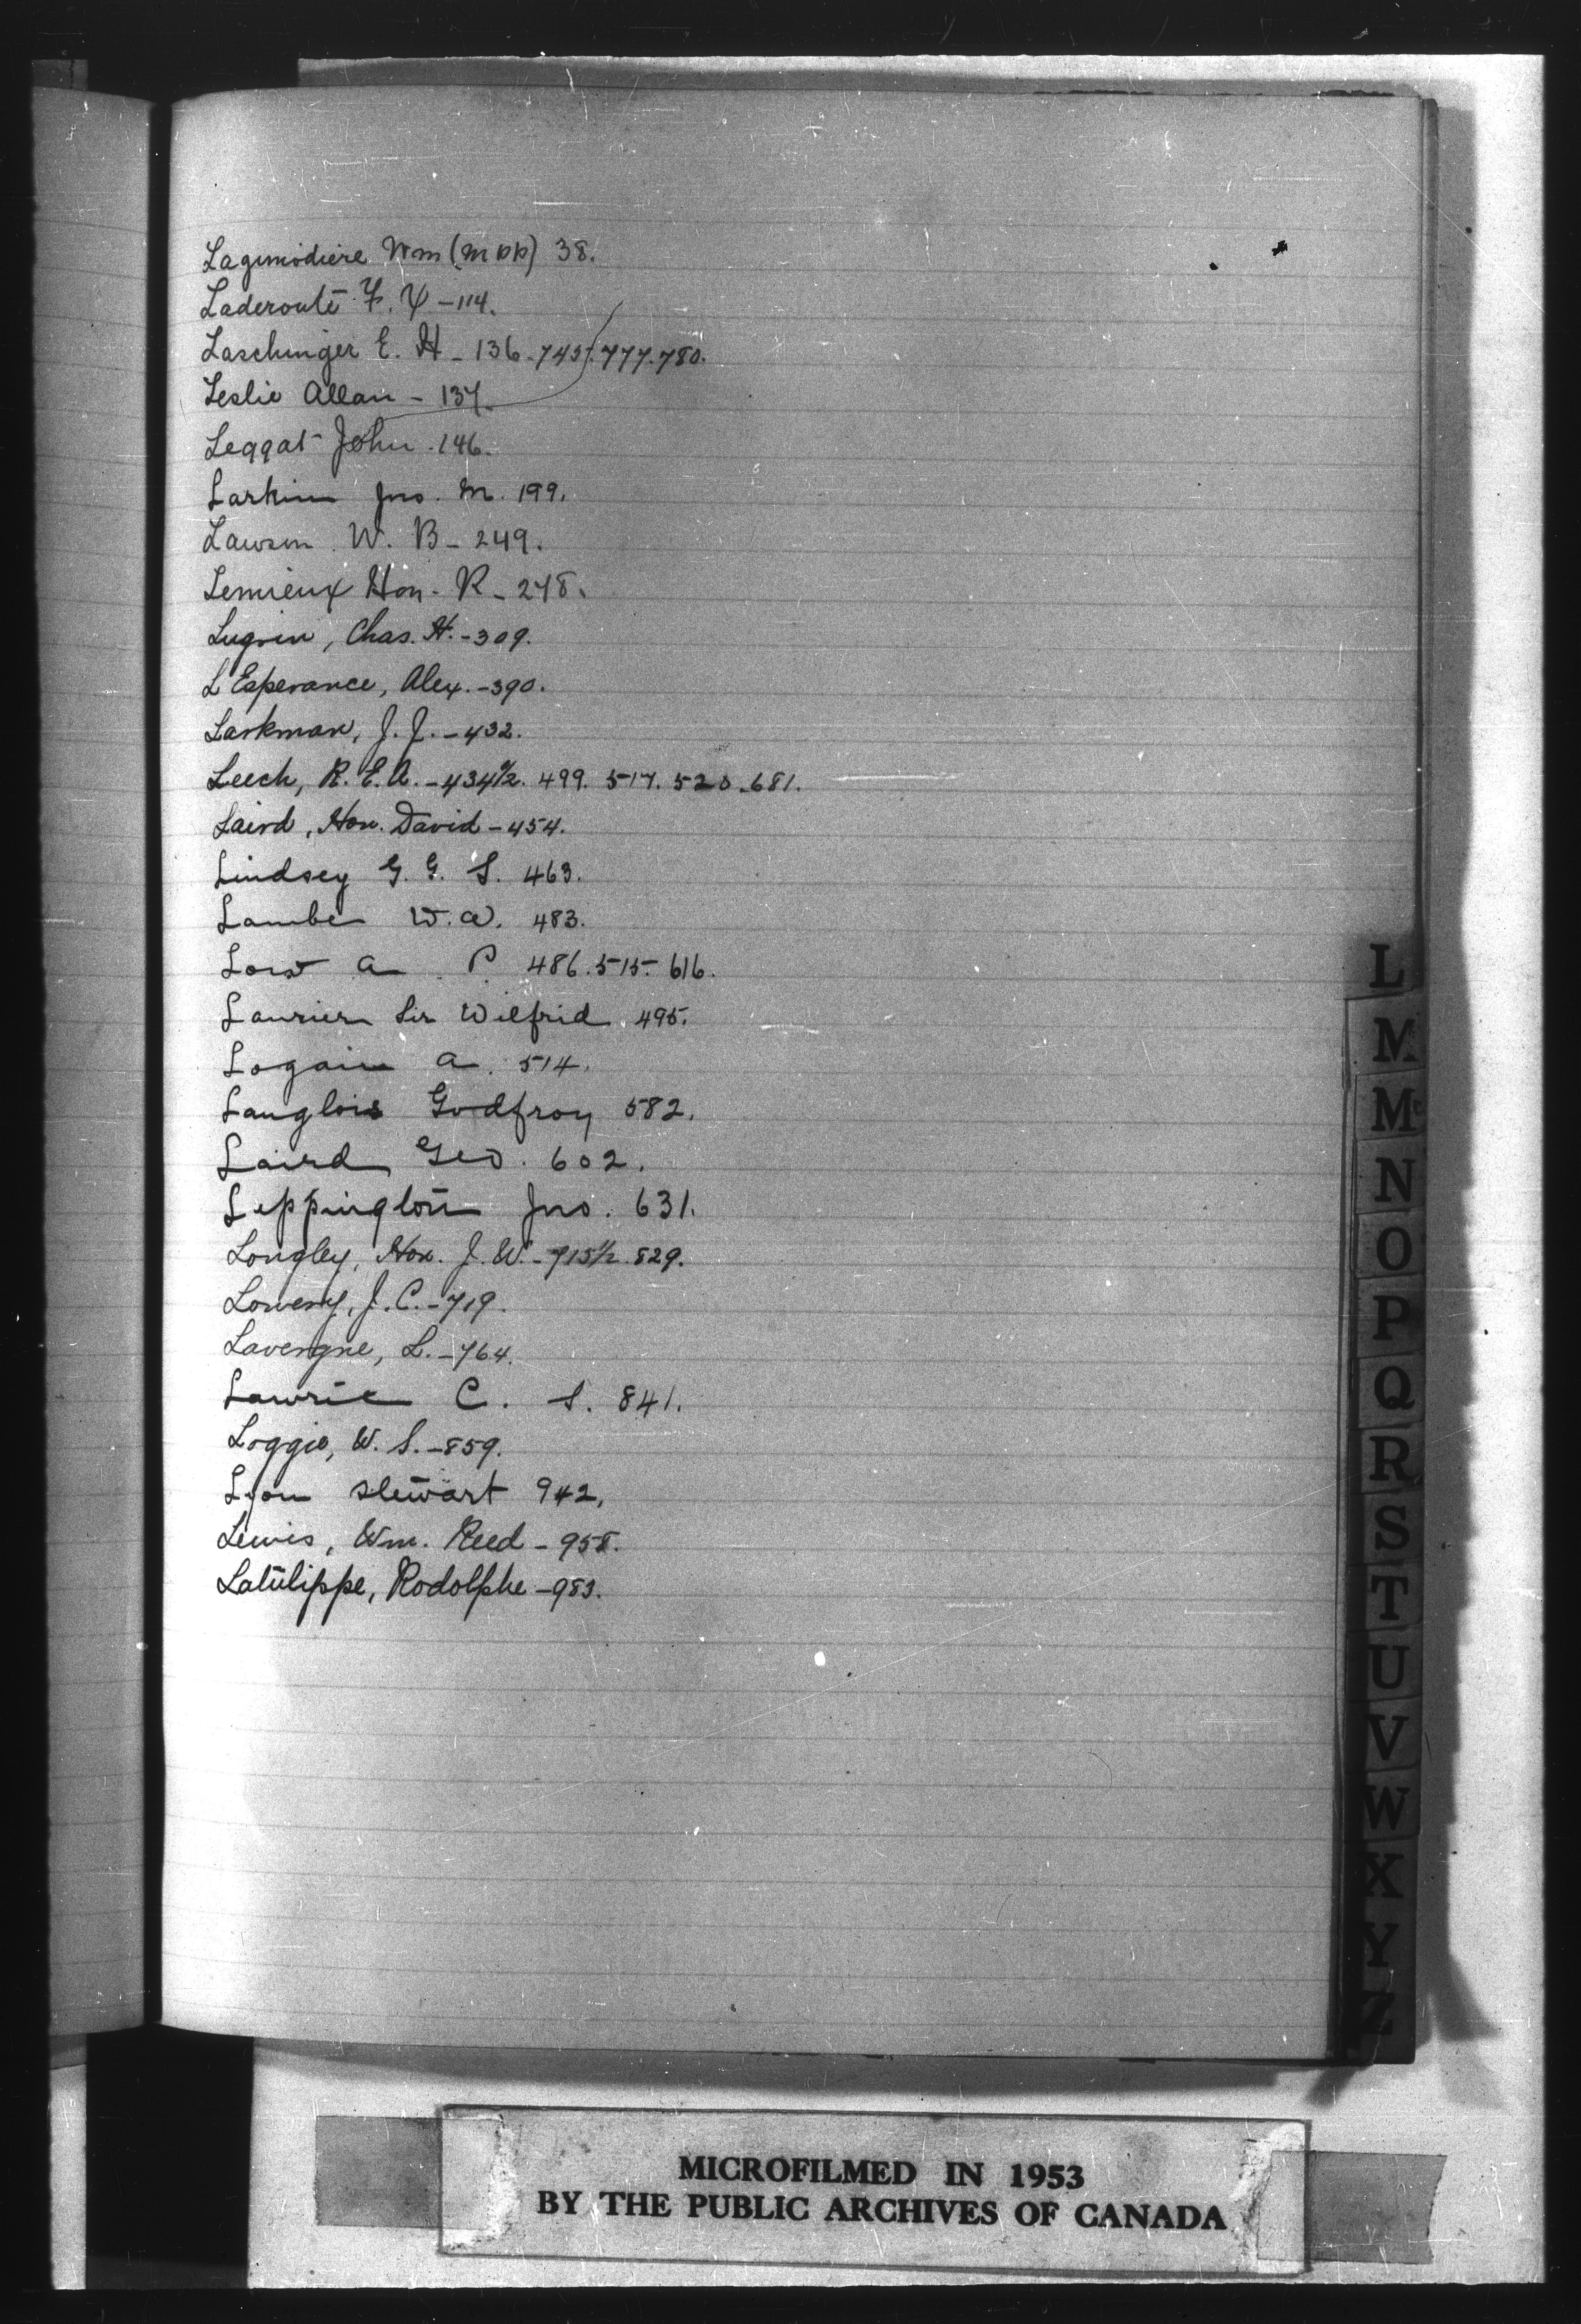 Lagimodiere Wm (M PP) 38.
Laderoute F. X - 114.
Laschinger E. H - 136. 745. 777. 780.
Leslie Allan - 137.
Leggat John . 146.
Larkin Jno. M. 199.
Lawson W. B - 249.
Lemieux Hon. R - 278.
Lugrin, Chas. H. - 309.
L'Esperance, Alex. - 390.
Larkman, J. J. - 432.
Leech, R. E. A. - 434½. 499. 517. 520. 681.
Laird, Hon. David - 454.
Lindsey G. G. S. 463.
Lambe W. A. 483.
Low A P. 486. 515. 616.
Laurier Sir Wilfrid . 495.
Logain A. 514.
Langlois Godfroy 582.
Laird Geo. 602.
Leppington Jno. 631.
Longley, Hon. J. W. - 715½. 829.
Lowery, J. C. - 719.
Lavergne, L. - 764.
Lawrie C. S. 841.
Loggie, W. S. - 859.
Lyon Stewart 942.
Lewis, Wm. Reed - 958.
Latulippe, Rodolphe - 983.
L
M
Mc
N
O
P
Q
R
S
T
U
V
W
X
Y
Z
MICROFILMED IN 1953
BY THE PUBLIC ARCHIVES OF CANADA